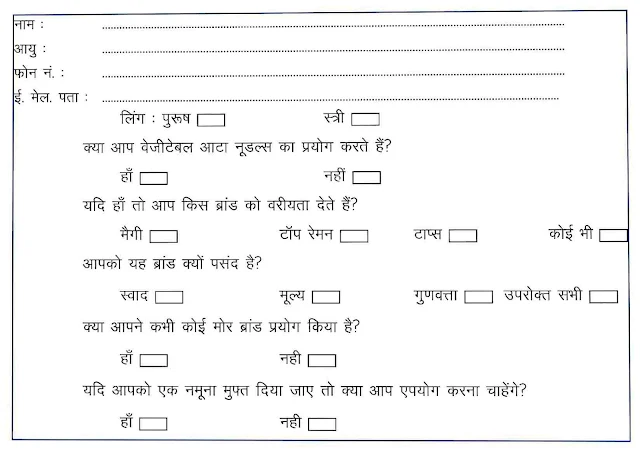 नाम : ........................................
आयु : ........................................
फोन नं. : ........................................
ई. मेल. पता : ........................................
लिंग : पुरूष स्त्री
क्या आप वेजीटेबल आटा नूडल्स का प्रयोग करते हैं?
हाँ नहीं
यदि हाँ तो आप किस ब्रांड को वरीयता देते हैं?
मैगी टॉप रेमन टाप्स कोई भी
आपको यह ब्रांड क्यों पसंद है?
स्वाद मूल्य गुणवत्ता उपरोक्त सभी
क्या आपने कभी कोई मोर ब्रांड प्रयोग किया है?
हाँ नही
यदि आपको एक नमूना मुफ्त दिया जाए तो क्या आप एपयोग करना चाहेंगे?
हाँ नही